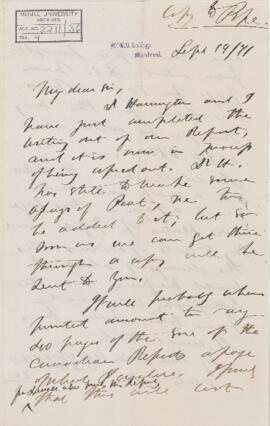 McGILL UNIVERSITY
ARCHIVES
ACC. NO. 2211/32
FILE 4
Copy to Pope.
McGill College
Montreal.
Sept 19/71
My dear Sir,
Dr Harrington and I
have just completed the
writing out of our Report,
and it is now in process
of being copied out. Dr H.
has still to make some
of Peat, &c to
be added to it; but so
soon as we can get these
things a copy will be
sent to you.
It will probably when
printed amount to say
40 pages of the size of the
Canadian Reports a page
of which I enclose. I find
that this will cost